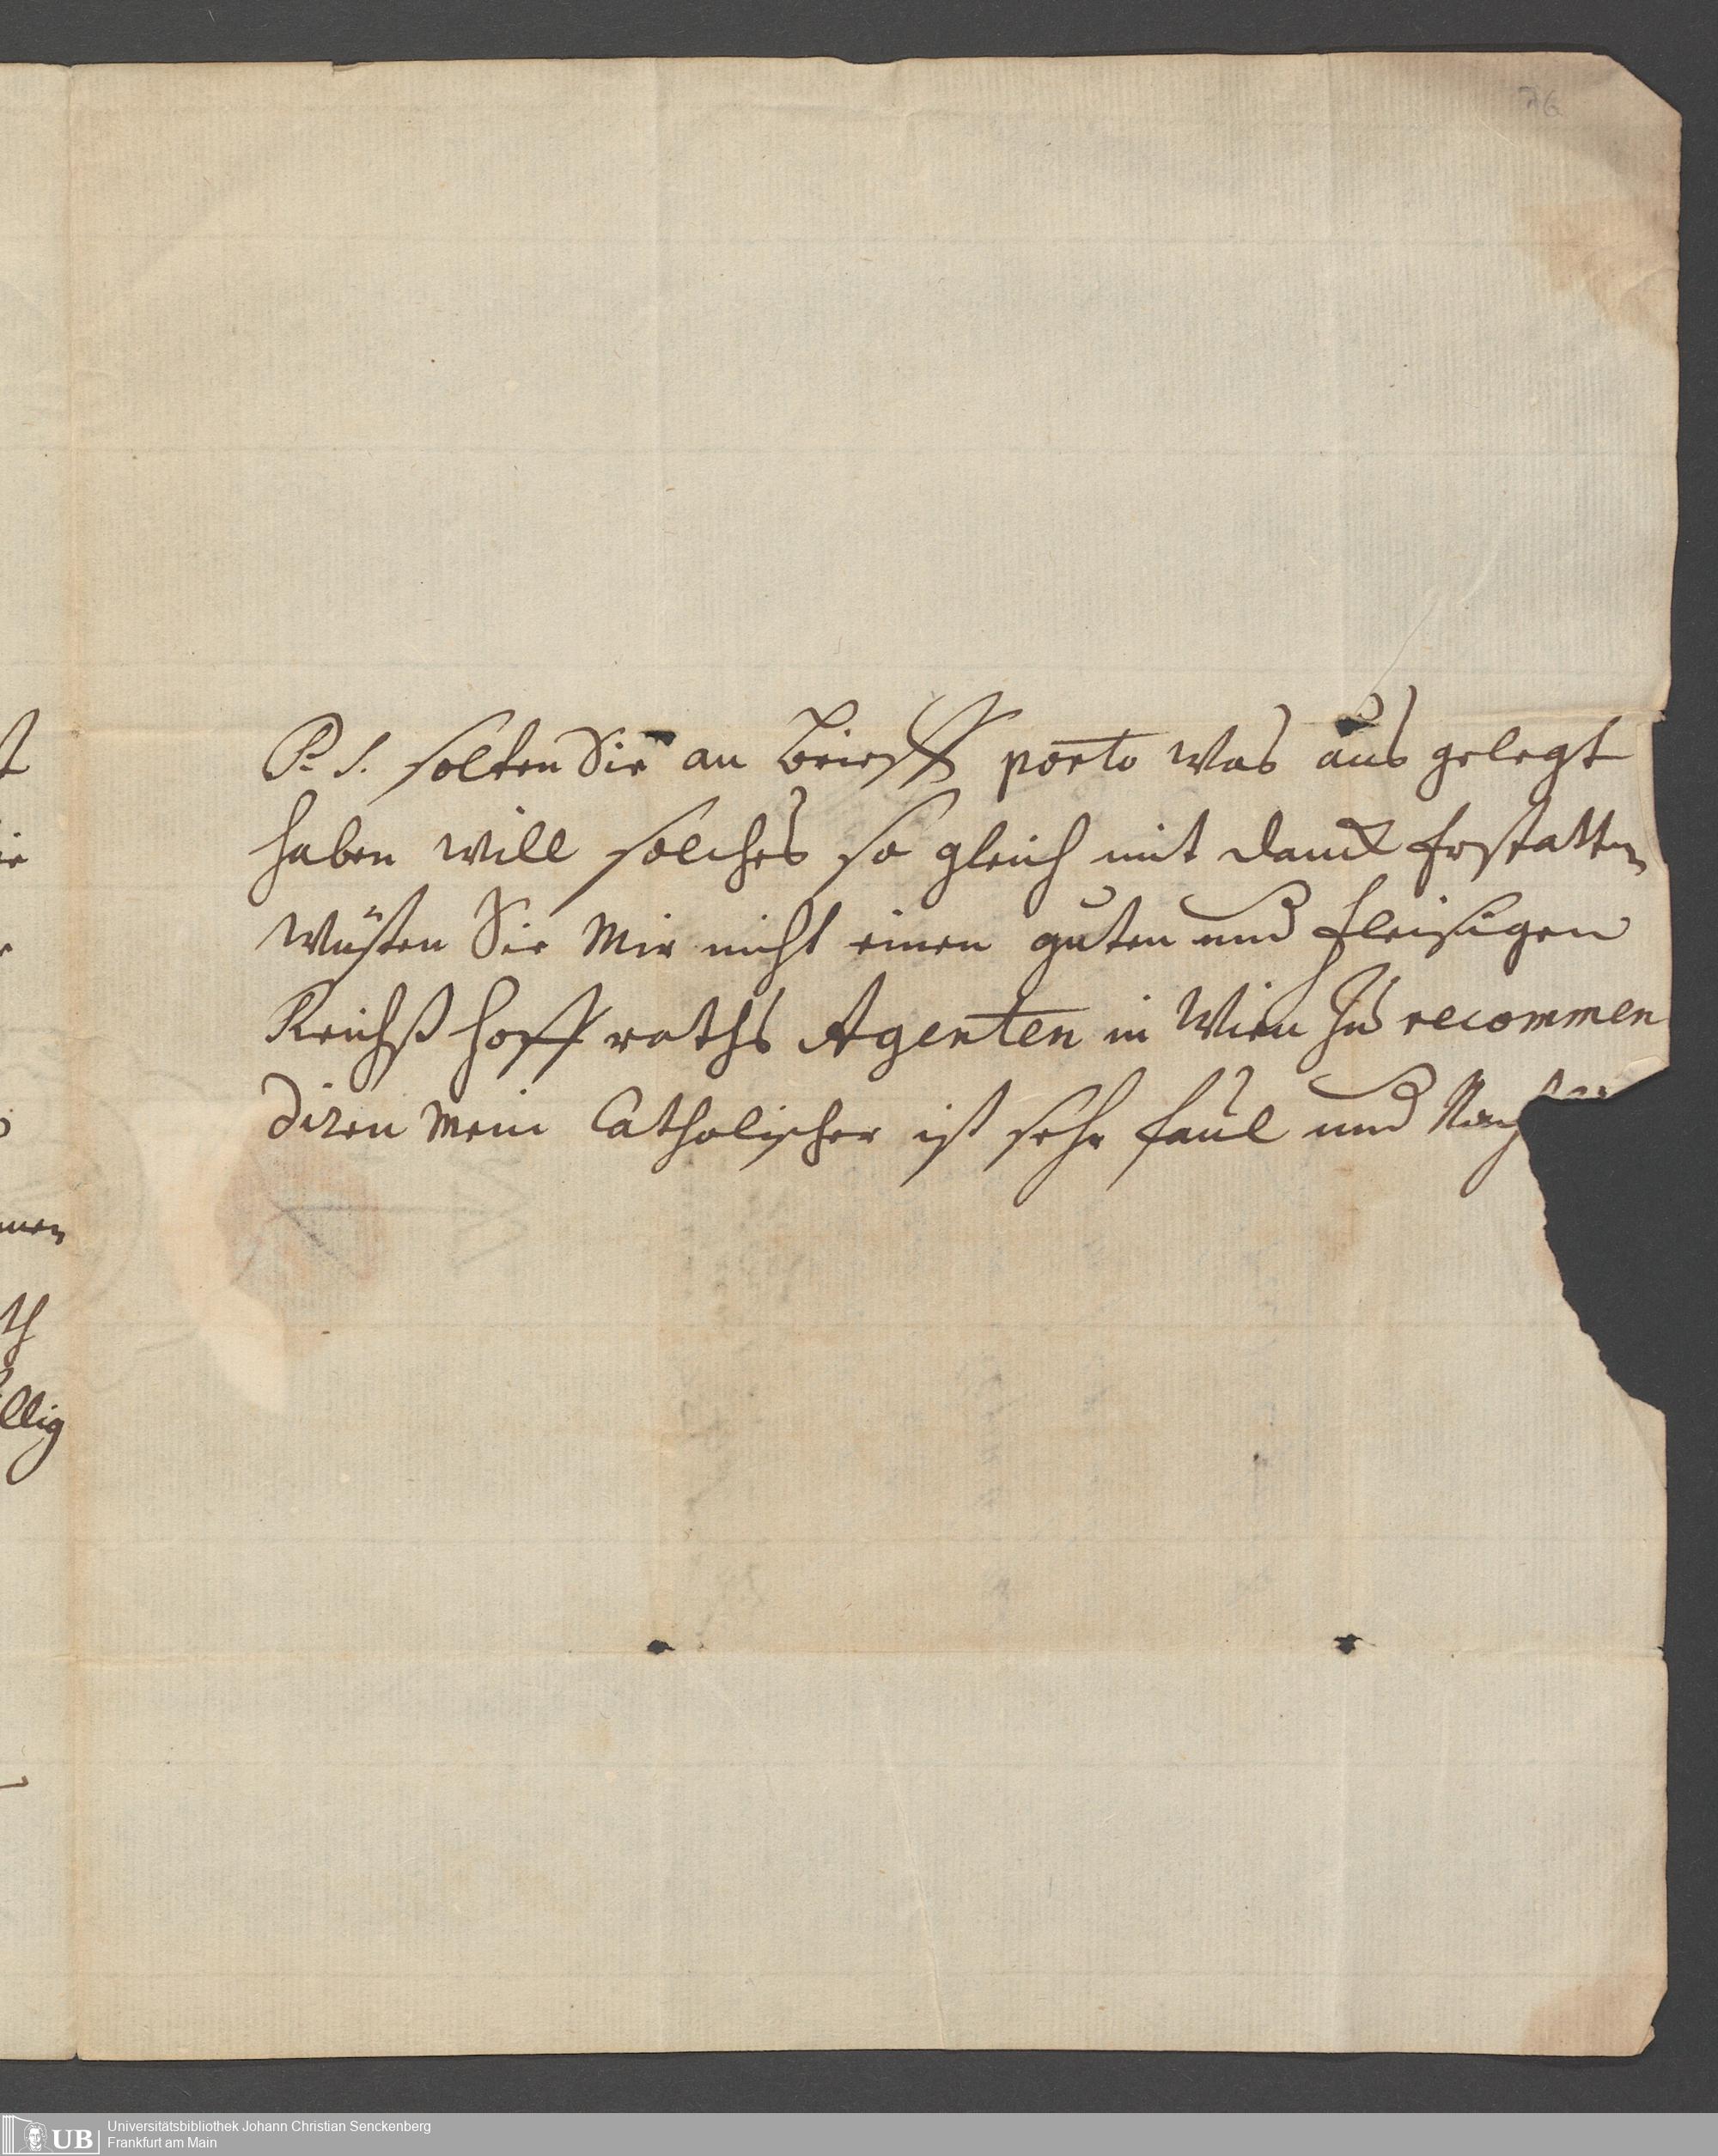 76
P. S. solten Sie an Brieff porto was aus gelegt
haben will solches so gleich mit danck erstatten
wüsten Sie mir nicht einen guten und fleisigen
Reichß hoff raths Agenten in Wien zu recommen
diren mein Catholischer ist sehr faul und
llig
UB
Universitätsbibliothek Johann Christian Senckenberg
Frankfurt am Main